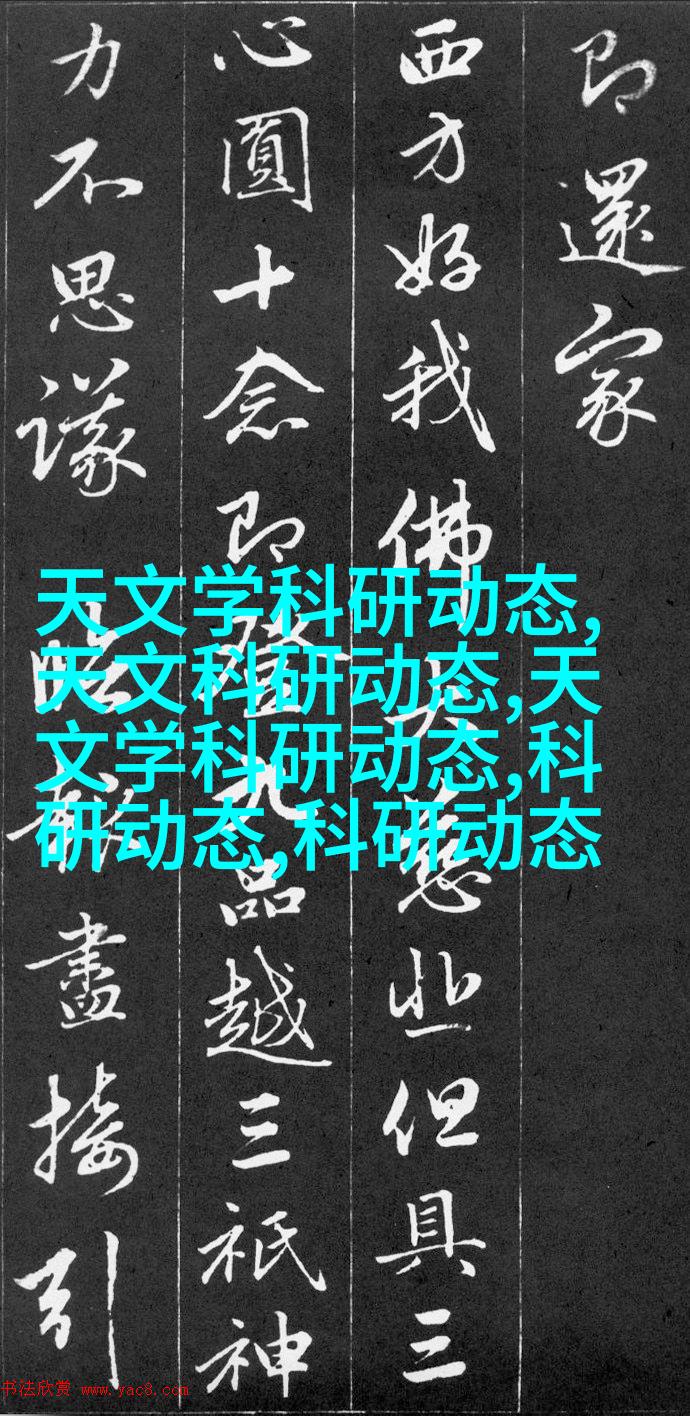 即還家
西方好我佛大慈悲但具三
心圓十念即證九品越三祇神
力不思議臨報盡接引
天文学科研动态,
天文科研动态,天
文学科研动态,科
研动态,科研动态
书法欣赏 www.yac8.com